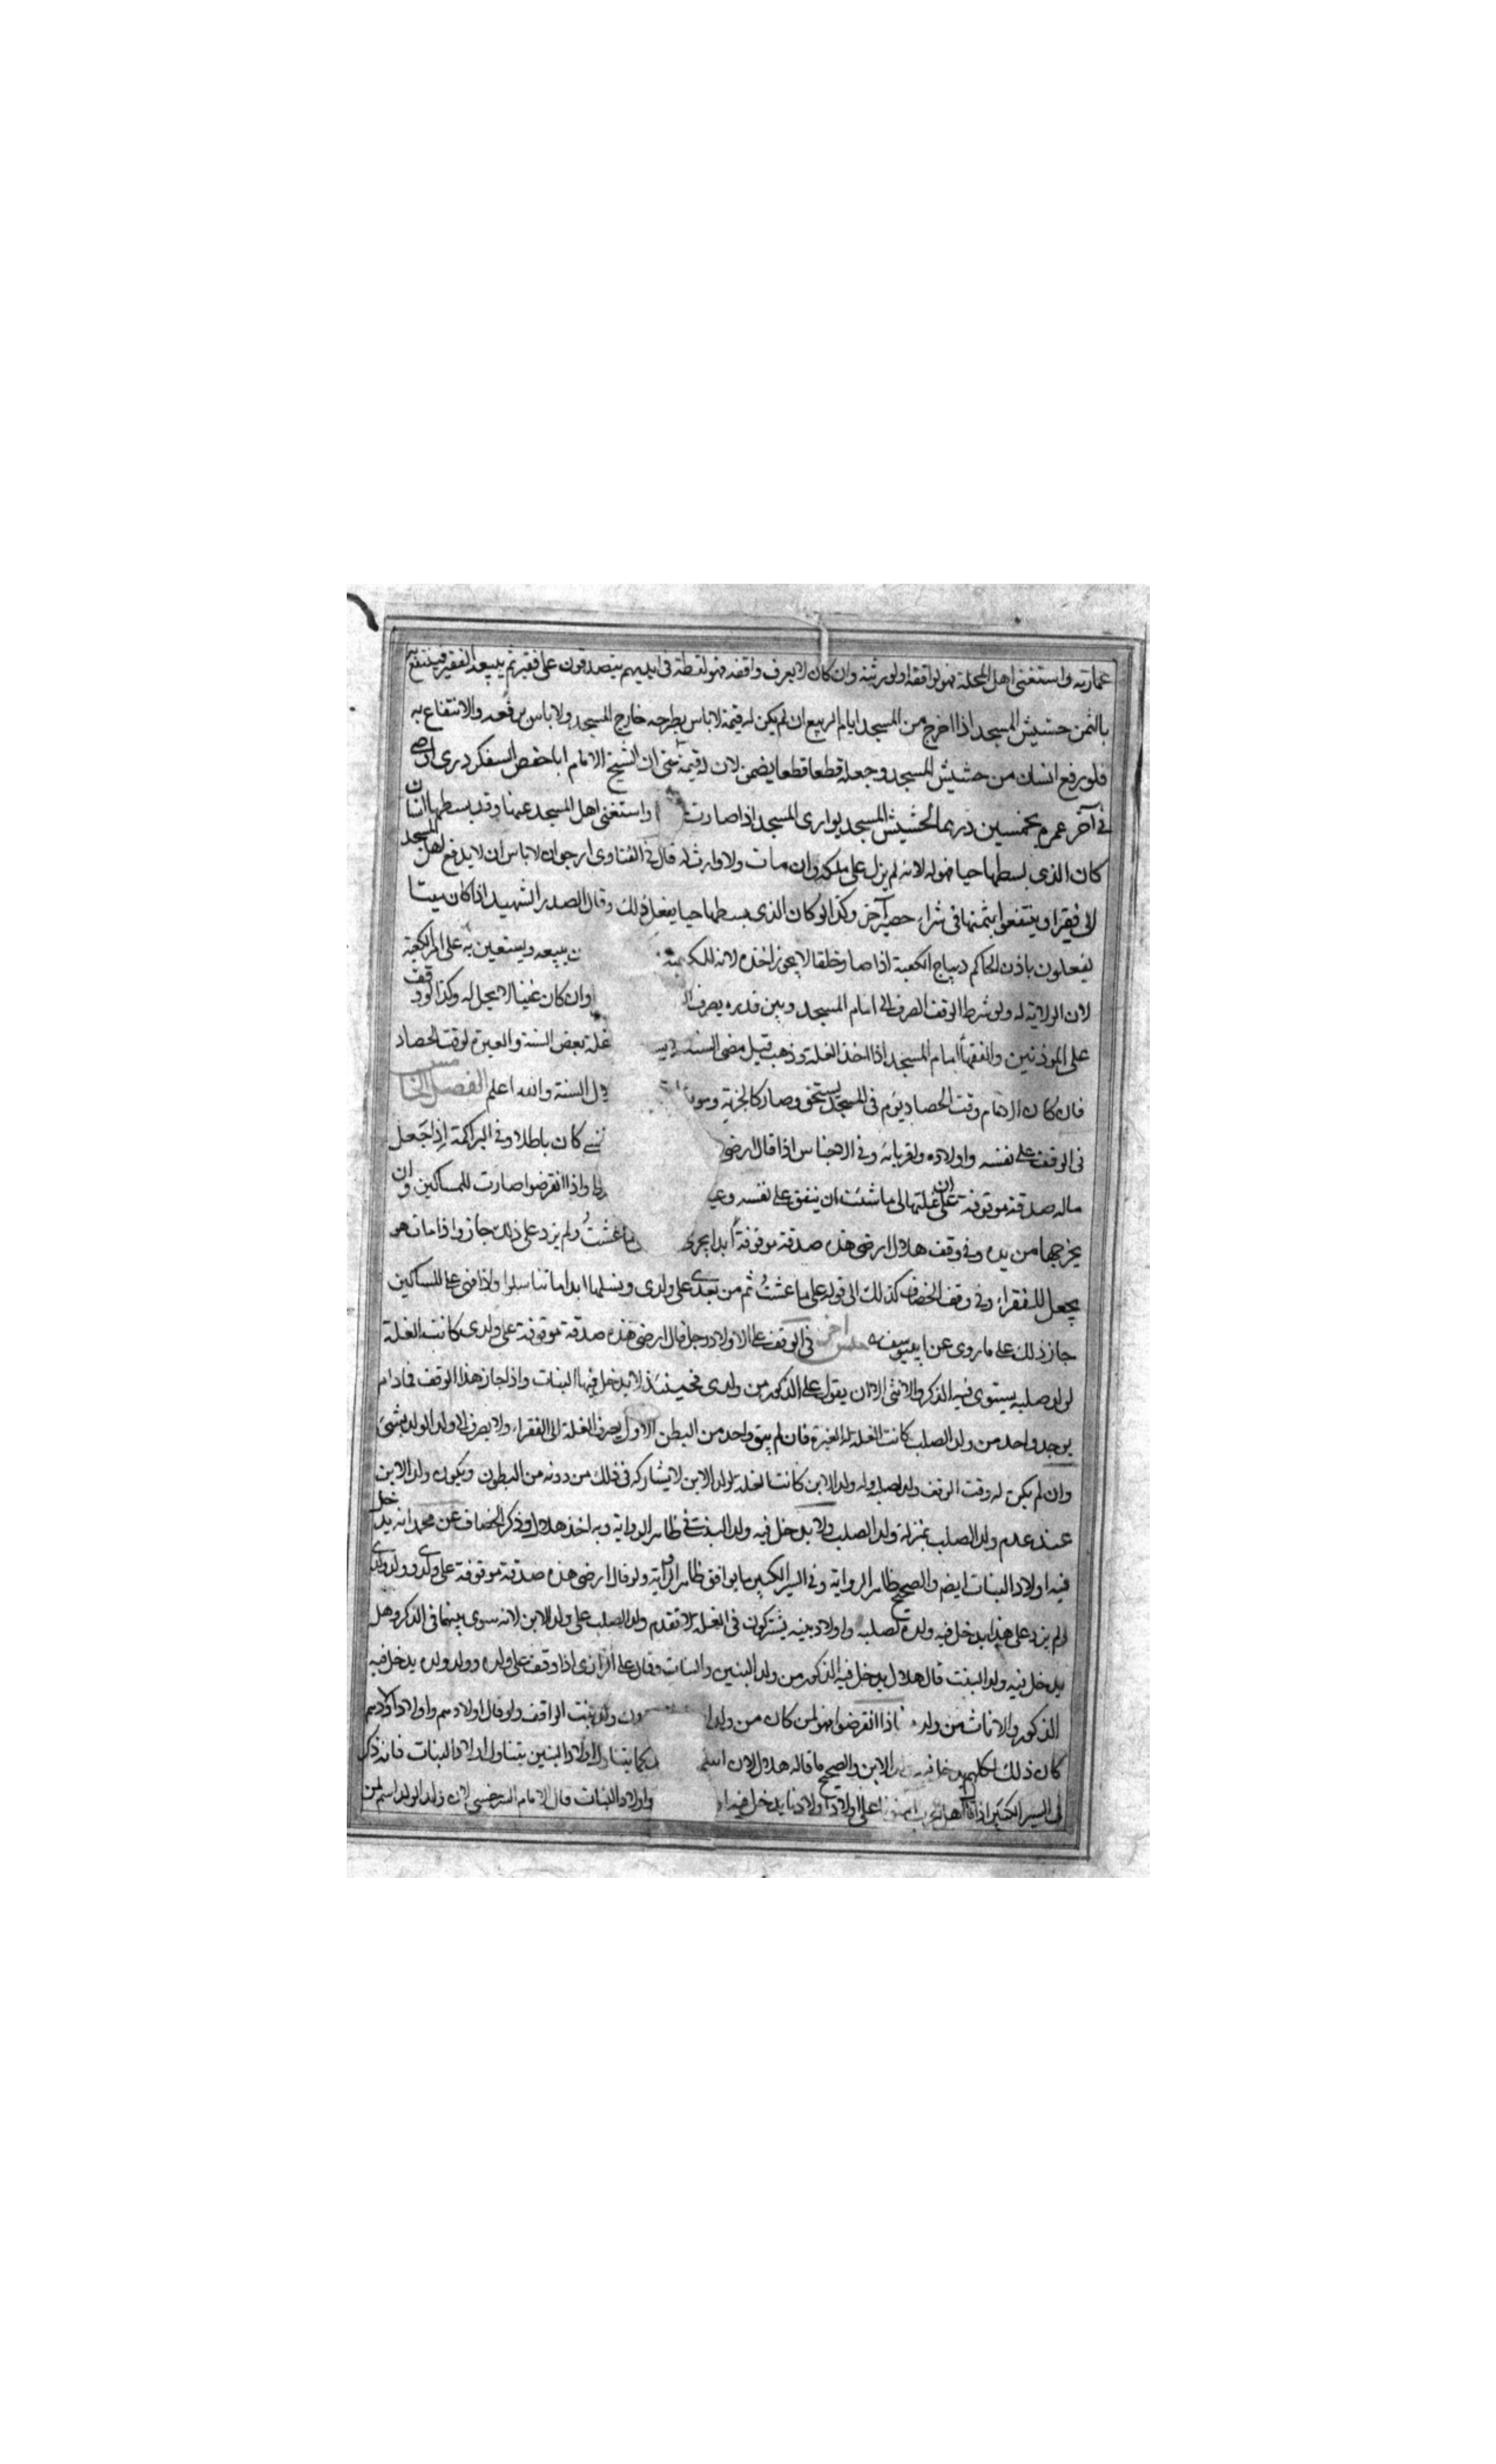 عمارته واستغنى اهل المحلة فهو لواقفه او لورثته وان كان لا يعرف واقفه فهو لقطة فى ايديهم يتصدقون على فقير ثم يبيعه الفقير فينتفع
بالثمن حشيش المسجد اذا اخرج من المسجد ايام الربيع ان لم يكن له قيمة لا باس بطرحه خارج المسجد ولا باس برفعه والانتفاع به
فلو رفع انسان من حشيش المسجد وجعله قطعا قطعا يضمن لان له قيمة حتى ان الشيخ الامام ابا حفص السفكردرى اوصى
فى آخر عمره بخمسين درهما لحشيش المسجد بوارى المسجد اذا صارت واستغنى اهل المسجد عنها وقد بسطها انسان
كان الذى بسطها حيا فهو له لانه لم يزل على ملكه وان مات ولا وارث له قال فى الفتاوى ارجو ان لا باس ان لا يدفع اهل المسجد
الى فقير او ينتفعوا بثمنها فى شراء حصير آخر وكذا لو كان الذى بسطها حيا يفعل ذلك وقال الصدر الشهيد اذا كان ميتا
يفعلون باذن الحاكم ديباج الكعبة اذا صار خلقا لا يجوز اخذه لانه للكعبة يبيعه ويستعين به على امر الكعبة
لان الولاية له ولو شرط الوقف الصرف الى امام المسجد وبين قدره يصرف وان كان غنيا لا يحل له وكذا لو وقف
على المؤذنين والفقهاء امام المسجد اذا اخذ الغلة وذهب قبل مضى السنة غلة بعض السنة والعبرة لوقت الحصاد
فان كان الامام وقت الحصاد يؤم فى المسجد يستحق وصار كالجزية السنة والله اعلم الفصل الخامس
فى الوقف على نفسه واولاده واقربائه وفى الاجناس اذا قال ارضى كان باطلا وفى البرامكة اذا جعل
ماله صدقة موقوفة على ان غلتها لى ما شئت ان ينفق على نفسه واذا انقرضوا صارت للمساكين وان
يخرجها من يده وفى وقف هلال ارضى هذه صدقة موقوفة ابدا يجرى ما عشت ولم يزد على ذلك جاز واذا مات هو
يجعل للفقراء وفى وقف الخصاف كذلك الى قوله على ما عشت ثم من بعدى على ولدى ونسلها ابدا ما تناسلوا واذا فنى على المساكين
جاز ذلك على ما روى عن ابى يوسف جنس آخر فى الوقف على الاولاد رجل قال ارضى هذه صدقة موقوفة على ولدى كانت الغلة
لولد صلبه يستوى فيه الذكر والانثى الا ان يقول على الذكور من ولدى فحينئذ لا يدخل فيها البنات واذا جاز هذا الوقف فما دام
يوجد واحد من ولد الصلب كانت الغلة له لا لغيره فان لم يبق واحد من البطن الاول يصرف الغلة الى الفقراء ولا يصرف الى ولد الولد بشئ
وان لم يكن له وقت الوقف ولد لصلبه وله ولد الابن كانت الغلة لولد الابن لا يشاركه فى ذلك من دونه من البطون ويكون ولد الابن
عند عدم ولد الصلب بمنزلة ولد الصلب ولا يدخل فيه ولد البنت فى ظاهر الرواية وبه اخذ هلال وذكر الخصاف عن محمد انه يدخل
فيه اولاد البنات ايضا والصحيح ظاهر الرواية وفى السير الكبير ما يوافق ظاهر الرواية ولو قال ارضى هذه صدقة موقوفة على ولدى وولد ولدى
ولم يزد على هذا يدخل فيه ولده لصلبه واولاد بنيه يشتركون فى الغلة لا تقدم ولد الصلب على ولد الابن لانه سوى بينهما فى الذكر وهل
يدخل فيه ولد البنت قال هلال يدخل فيه الذكور من ولد البنين والبنات وقال على الرازى اذا وقف على ولده وولد ولده يدخل فيه
الذكور والاناث من ولده فاذا انقرضوا فهو لمن كان من ولد دون ولد بنت الواقف ولو قال اولادهم واولاد اولادهم
كان ذلك لكلهم يدخل فيه ولد الابن والصحيح ما قاله هلال لان اسم كما يتناول اولاد البنين يتناول اولاد البنات فانه ذكر
فى السير الكبير اذا قال اهل الحرب على اولادنا واولاد اولادنا يدخل فيه واولاد البنات قال الامام السرخسى لان ولد الولد اسم لمن